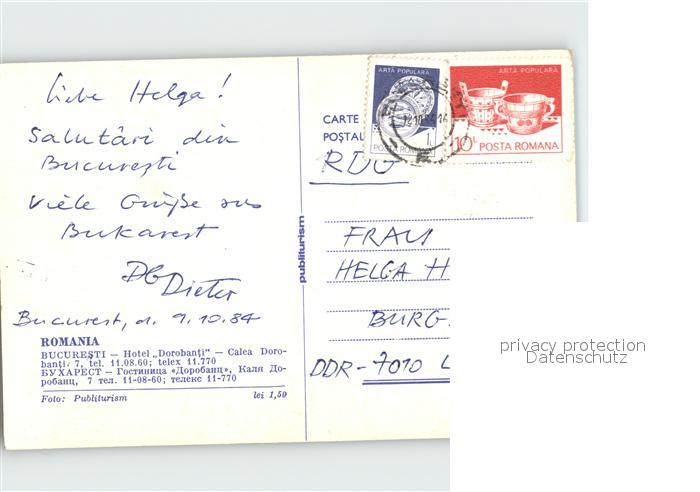 Liebe Helga!
Salutări din
București
Viele Grüße aus
Bukarest
Dieter
Bucureşt, d. 9.10.84
ROMANIA
BUCUREŞTI — Hotel „Dorobanţi" — Calea Doro-
banţi 7, tel. 11.08.60; telex 11.770
БУХАРЕСТ — Гостиница «Доробанц», Каля До-
робанц, 7 тел. 11-08-60; телекс 11-770
Foto: Publiturism lei 1,50
publiturism
CARTE
POŞTAL
ARTĂ POPULARĂ
POSTA ROMANA
ARTĂ POPULARĂ
10L POSTA ROMANA
RDG
FRAU
HELGA H
BURG
DDR-7010 L
privacy protection
Datenschutz